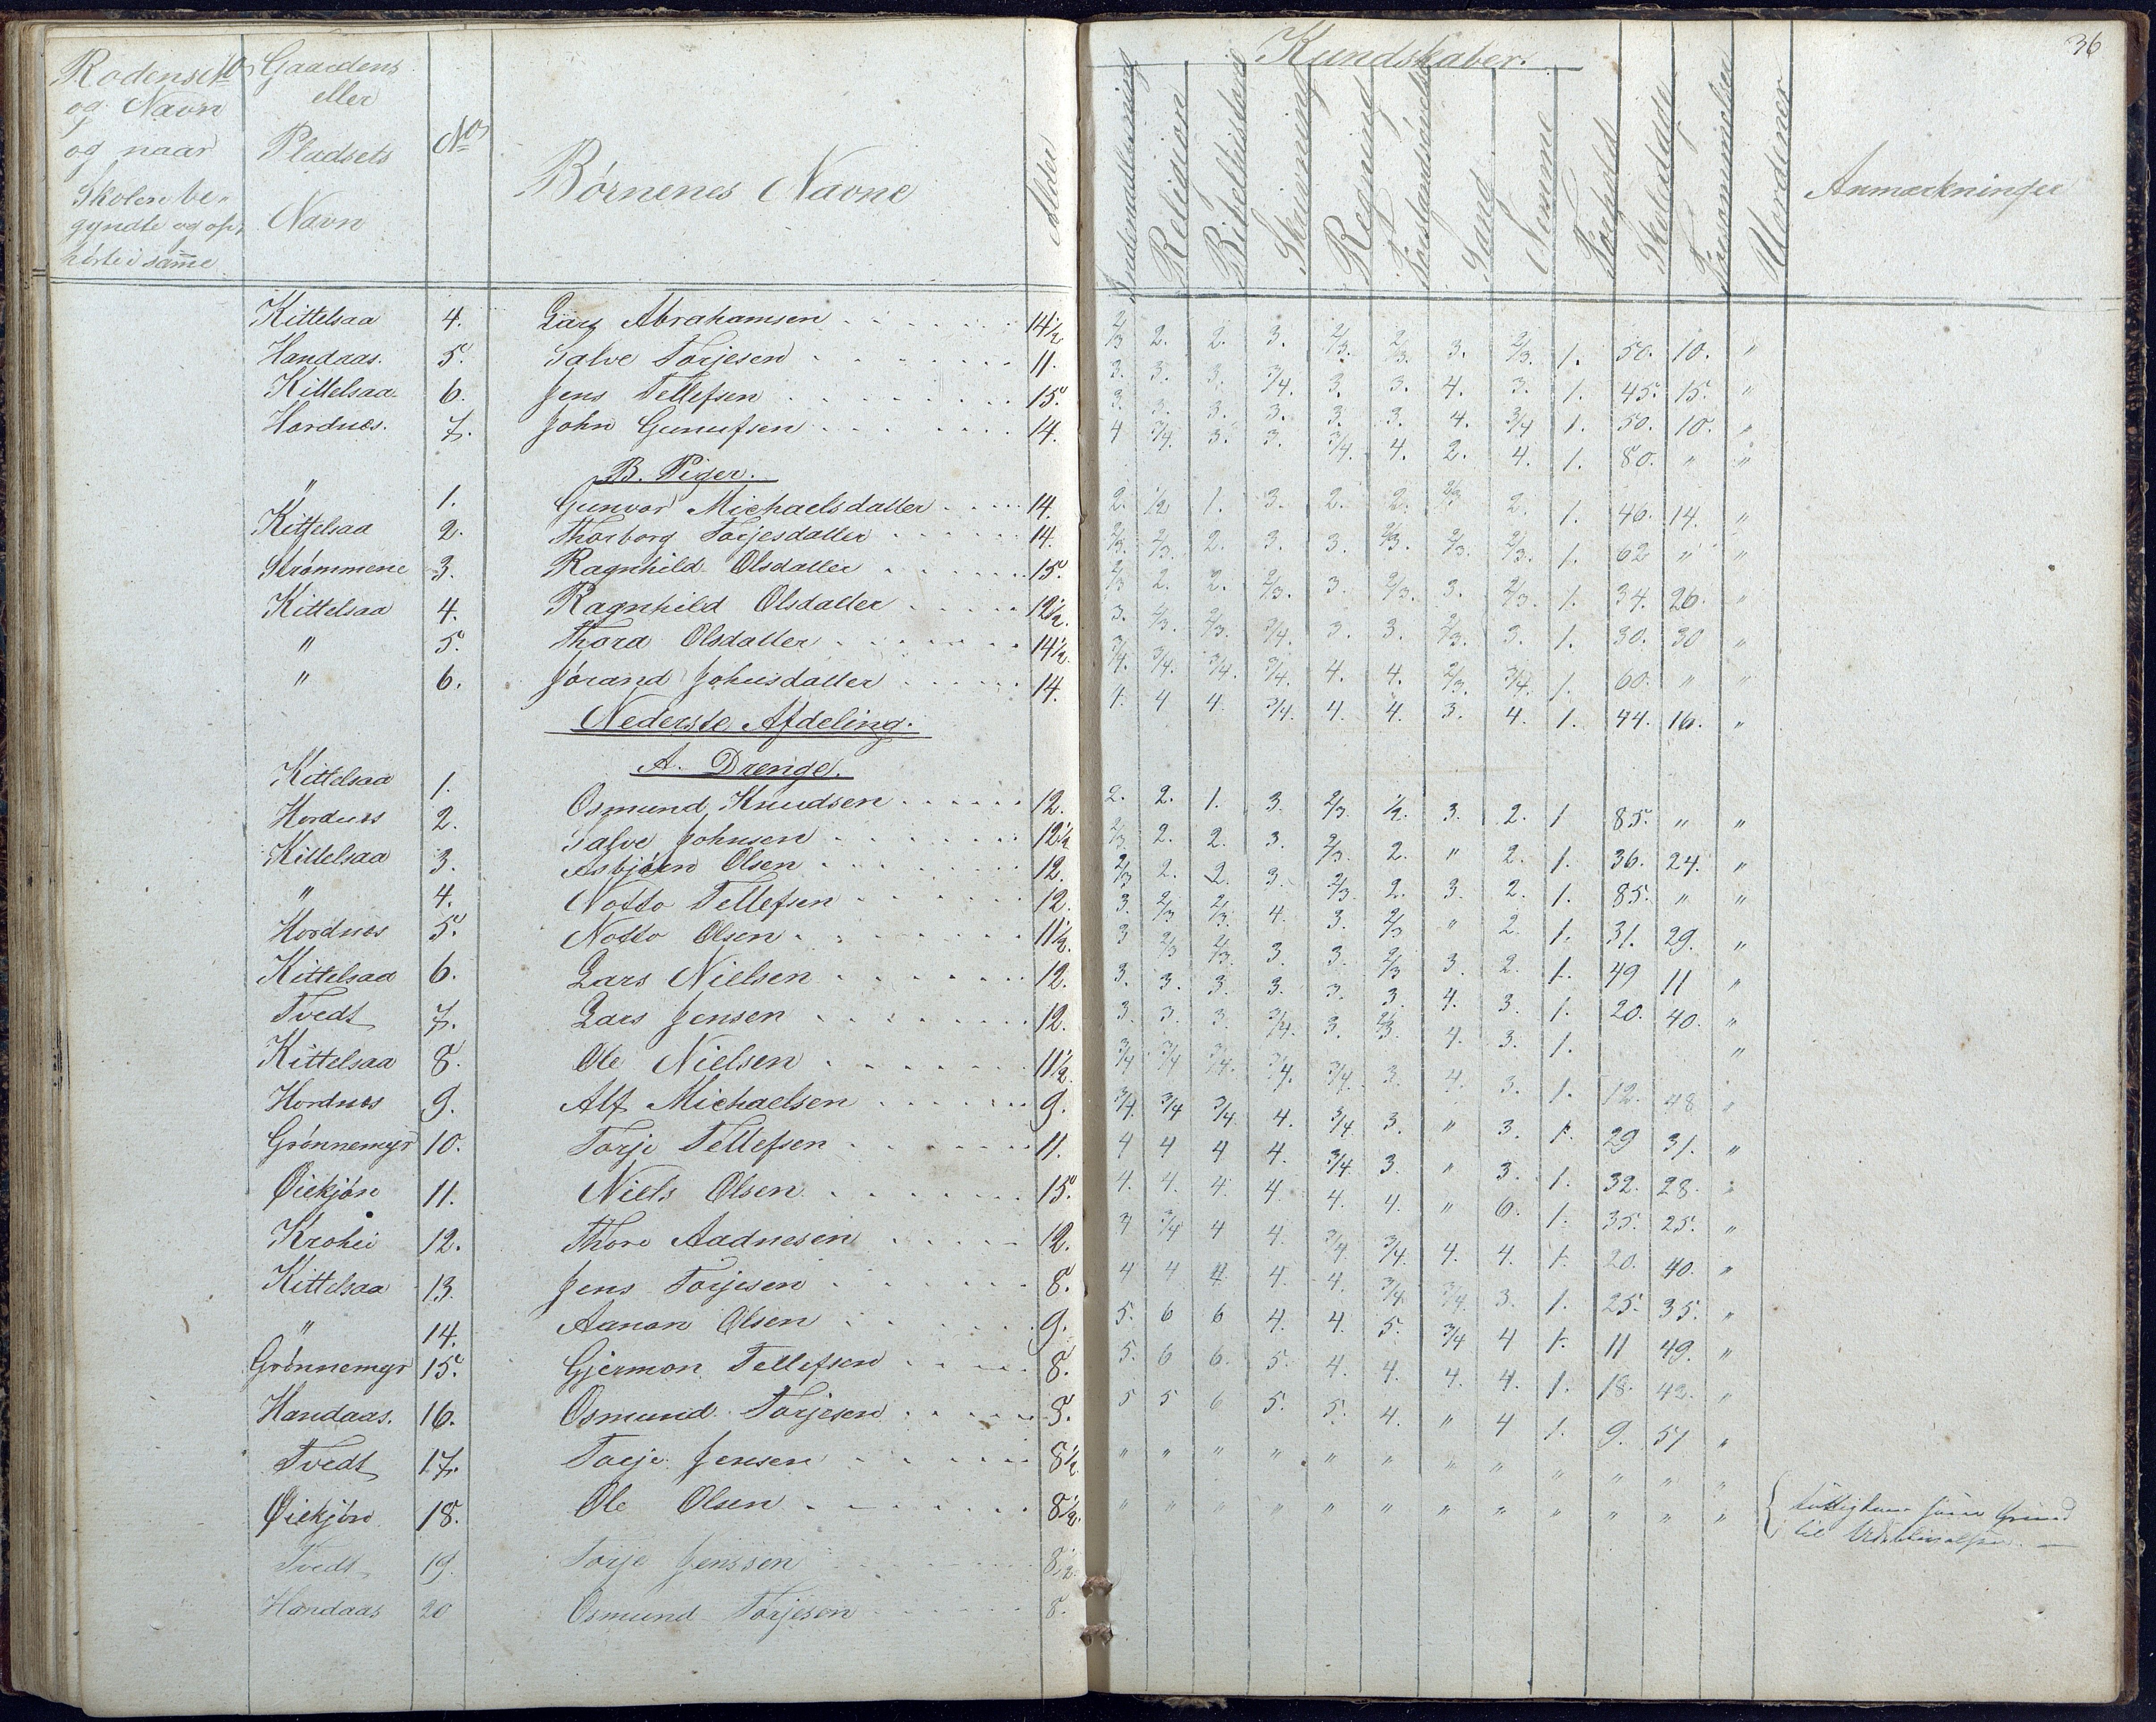 36
Rodens No Gaardens
og Navn eller
og naar Pladsets No Børnenes Navne Alder
Skolen be-
gyndte og op- Navn
hørte i samme
Kundskaber.
Indenadlæsning Religion Bibelhistorie Skrivning Regning Forstandsøvelse Sang Nemme Forhold Skoledage Forsømmelser Vordener Anmærkninger
Kittelsaa 4. Lars Abrahamsen 14½ 2/3 2. 2. 3. 2/3. 2/3. 3. 2/3. 1. 50. 10. "
Handaas. 5. Salve Torjesen 11. 3. 3. 3. 3/4. 3. 3. 4. 3. 1. 45. 15. "
Kittelsaa 6. Jens Tellefsen 15. 3. 3. 3. 3. 3. 3. 4. 3/4 1. 50. 10. "
Hordnes. 7. John Gunufsen 14. 4 3/4. 3. 3. 3/4. 4. 2. 4. 1. 80. " "
B. Piger.
" 1. Gunvor Michaelsdatter 14. 2. ½ 1. 3. 2. 2. 2/3 2. 1. 46. 14. "
Kittelsaa 2. Thorborg Torjesdatter 14. 2/3. 2/3. 2. 3. 3. 2/3. 2/3. 2/3. 1. 62 " "
Strømmene 3. Ragnhild Olsdatter 15. 2/3 2. 2. 2/3. 3. 2/3. 3. 2/3. 1. 34. 26. "
Kittelsaa 4. Ragnhild Olsdatter 12½. 3. 2/3. 2/3. 3/4. 3. 3. 2/3. 3. 1. 30. 30 "
" 5. Thora Olsdatter 14½. 3/4. 3/4. 3/4. 3/4. 4. 4. 2/3. 3/4. 1. 60. " "
" 6. Jørand Johnsdatter 14. 4. 4 4. 3/4. 4. 4. 3. 4. 1. 44. 16. "
Nederste Afdeling.
A. Drenge.
Kittelsaa 1. Osmund Knudsen 12. 2. 2. 1. 3. 2/3. ½. 3. 2. 1 85. " "
Hordnes 2. Salve Johnsen 12½ 2/3 2. 2. 3. 2/3. 2. " 2. 1. 36. 24. "
Kittelsaa 3. Asbjørn Olsen 12. 2/3 2. 2. 3. 2/3. 2. 3. 2. 1. 85. " "
" 4. Notto Tellefsen 12. 3. 2/3 2/3. 4. 3. 2/3 " 2. 1. 31. 29. "
Hordnes 5. Notto Olsen 11½. 3 2/3 2/3. 3. 3. 2/3 3. 2. 1. 49 11 "
Kittelsaa 6. Lars Nielsen 12. 3. 3. 3. 3. 3. 3. 4. 3. 1. 20. 40. "
Tvedt 7. Lars Jensen 12. 3. 3. 3. 3/4. 3. 2/3. 4. 3. 1. "
Kittelsaa 8. Ole Nielsen 11½. 3/4 3/4 3/4. 3/4. 3/4. 3. 4. 3. 1. 12. 48 "
Hordnes 9. Alf Michaelsen 9. 3/4. 3/4 3/4. 4. 3/4. 3. " 3. 1. 29 31. "
Grønnemyr 10. Torje Tellefsen 11. 4 4 4 4. 3/4. 3. " 3. 1. 32. 28. "
Øiekjøn 11. Niels Olsen 15. 4. 4. 4. 4. 4. 4. " 6. 1. 35. 25. "
Krohei 12. Thore Aadnesen 12. 4 3/4 4 4. 3/4. 3/4. 4. 4. 1. 20. 40. "
Kittelsaa 13. Jens Torjesen 8. 4 4 4. 4. 4. 3/4. 3/4. 3. 1. 25. 35. "
" 14. Aanon Olsen 9. 5. 6 6 4. 4. 5. 3/4 4 1. 11 49. "
Grønnemyr 15. Gjermon Tellefsen 8. 5. 6 6. 5. 4. 4. 4. 4. 1. 18. 42. "
Handaas. 16. Osmund Torjesen 8. 5 5 6 5. 5. 4. " 4 1. 9. 51 "
Tvedt 17. Torje Jensen 8½ " " " " " " " " " " " "
Øiekjøn 18. Ole Olsen 8½. " " " " " " " " " " " " Grund
til
Tvedt 19. Torje Jenssen 8½.
Handaas 20 Osmund Torjesen 8.